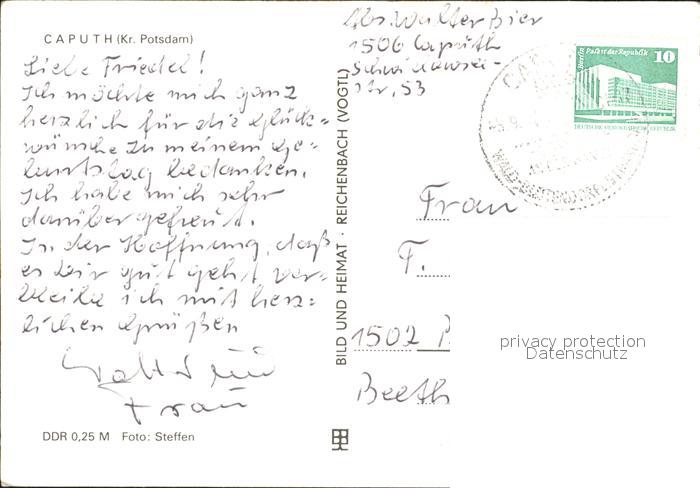 CAPUTH (Kr. Potsdam)
Liebe Friedel!
Ich möchte mich ganz
herzlich für die Glück=
wünsche zu meinem Ge=
burtstag bedanken.
Ich habe mich sehr
darüber gefreut.
In der Hoffnung, daß
es Dir gut geht ver=
bleibe ich mit herz=
lichen Grüßen
Walter und
Frau
DDR 0,25 M Foto: Steffen
BILD UND HEIMAT · REICHENBACH (VOGTL)
Abs. Walter Bier
1506 Caputh
Schwielowsee-
str. 53
Berlin Palast der Republik 10
DEUTSCHE DEMOKRATISCHE REPUBLIK
Frau
F.
1502 P
Beeth
privacy protection
Datenschutz